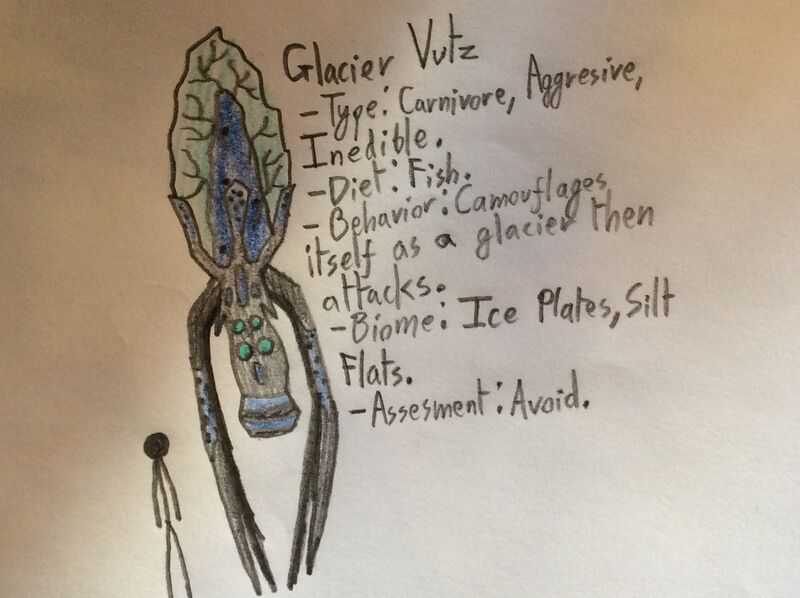 Glacier Vutz
-Type: Carnivore, Aggresive,
Inedible.
-Diet: Fish.
-Behavior: Camouflages
itself as a glacier then
attacks.
-Biome: Ice Plates, Silt
Flats.
-Assesment: Avoid.